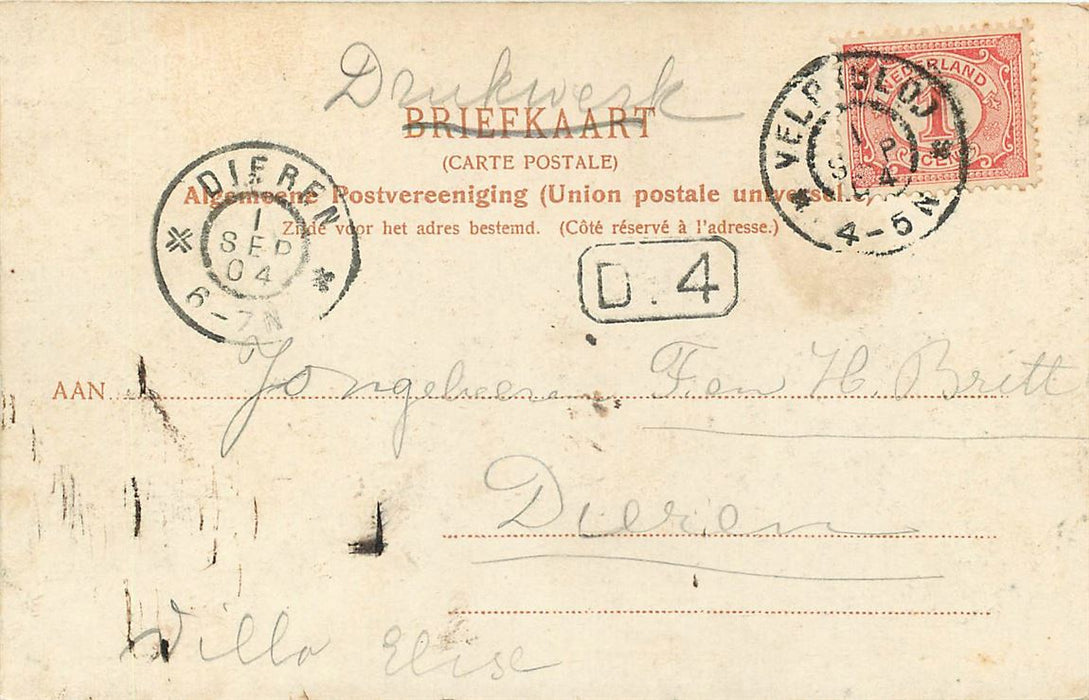 Drukwerk
BRIEFKAART
(CARTE POSTALE)
Algemeene Postvereeniging (Union postale universelle)
Zijde voor het adres bestemd. (Côté réservé à l'adresse.)
NEDERLAND
1
CENT
VELP (GLD)
1 SEP 04
4-5N
DIEREN
1
SEP
04
6-7N
D. 4
AAN Jongeheer F. en H. Britt
Dieren
Villa Elise